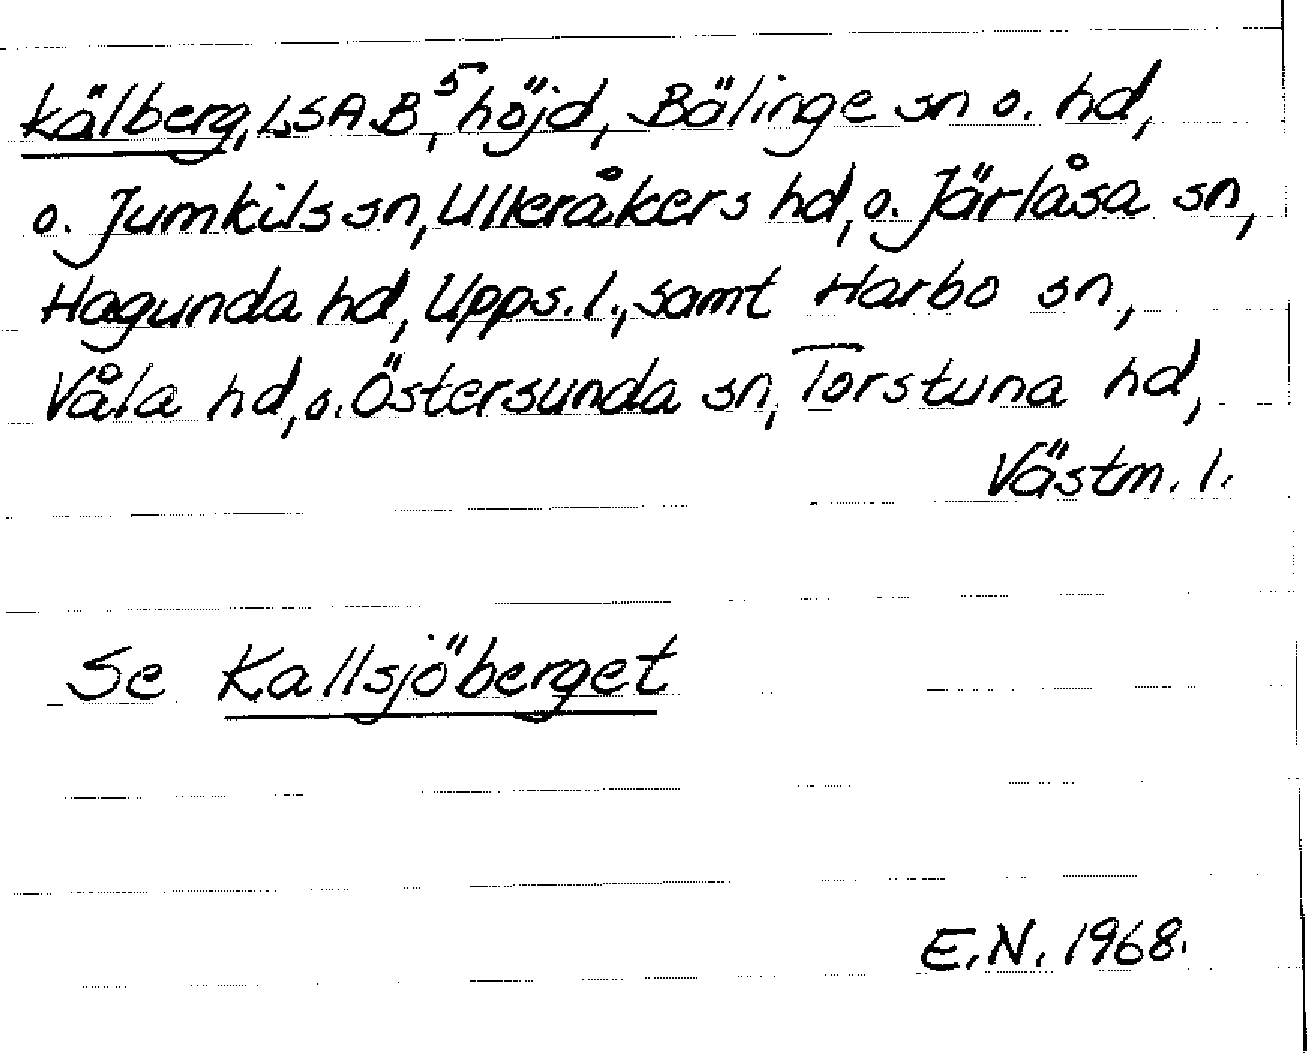 kälberg, LSA.B,⁵ höjd, Bälinge sn o. hd,
o. Jumkils sn, Ulleråkers hd, o. Järlåsa sn,
Hagunda hd, Upps. l., samt Harbo sn,
Våla hd, o. Östersunda sn, Torstuna hd,
Västm. l.
Se Kallsjöberget
E.N. 1968.